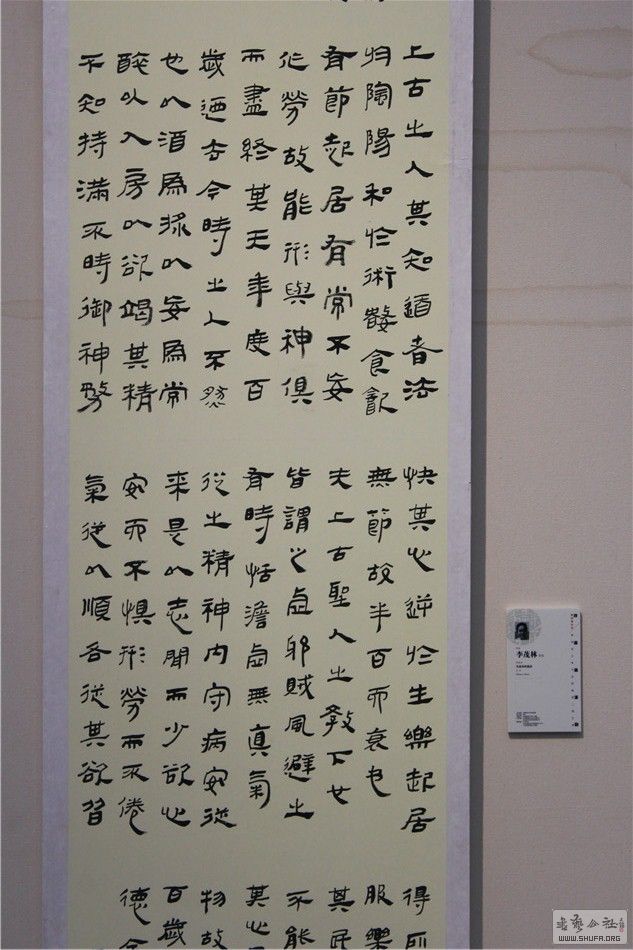 上古之人其知道者法
於陰陽和於術數食飲
有節起居有常不妄
作勞故能形與神俱
而盡終其天年度百
歲迺去今時之人不然
也以酒為漿以妄為常
醉以入房以欲竭其精
不知持滿不時御神務
快其心逆於生樂起居
無節故半百而衰也
夫上古聖人之教下也
皆謂之虛邪賊風避之
有時恬澹虛無真氣
從之精神內守病安從
來是以志閒而少欲心
安而不懼形勞而不倦
氣從以順各從其欲皆
得所
服樂
其民
不能
其心
物故
百歲
德
李茂林
書藝公社
WWW.SHUFA.ORG